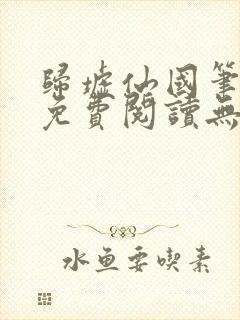 歸墟仙國筆
免費閱讀無
水魚要喫素